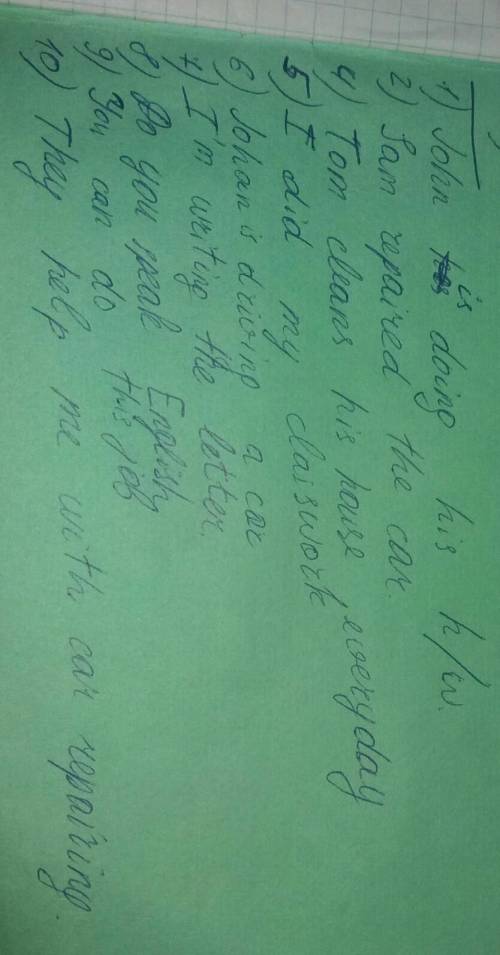 1) John is doing his h/w.
2) Sam repaired the car.
4) Tom cleans his house everyday
5) I did my classwork
6) Johan is driving a car
7) I'm writing the letter.
8) Do you speak English
9) You can do this job
10) They help me with car repairing.